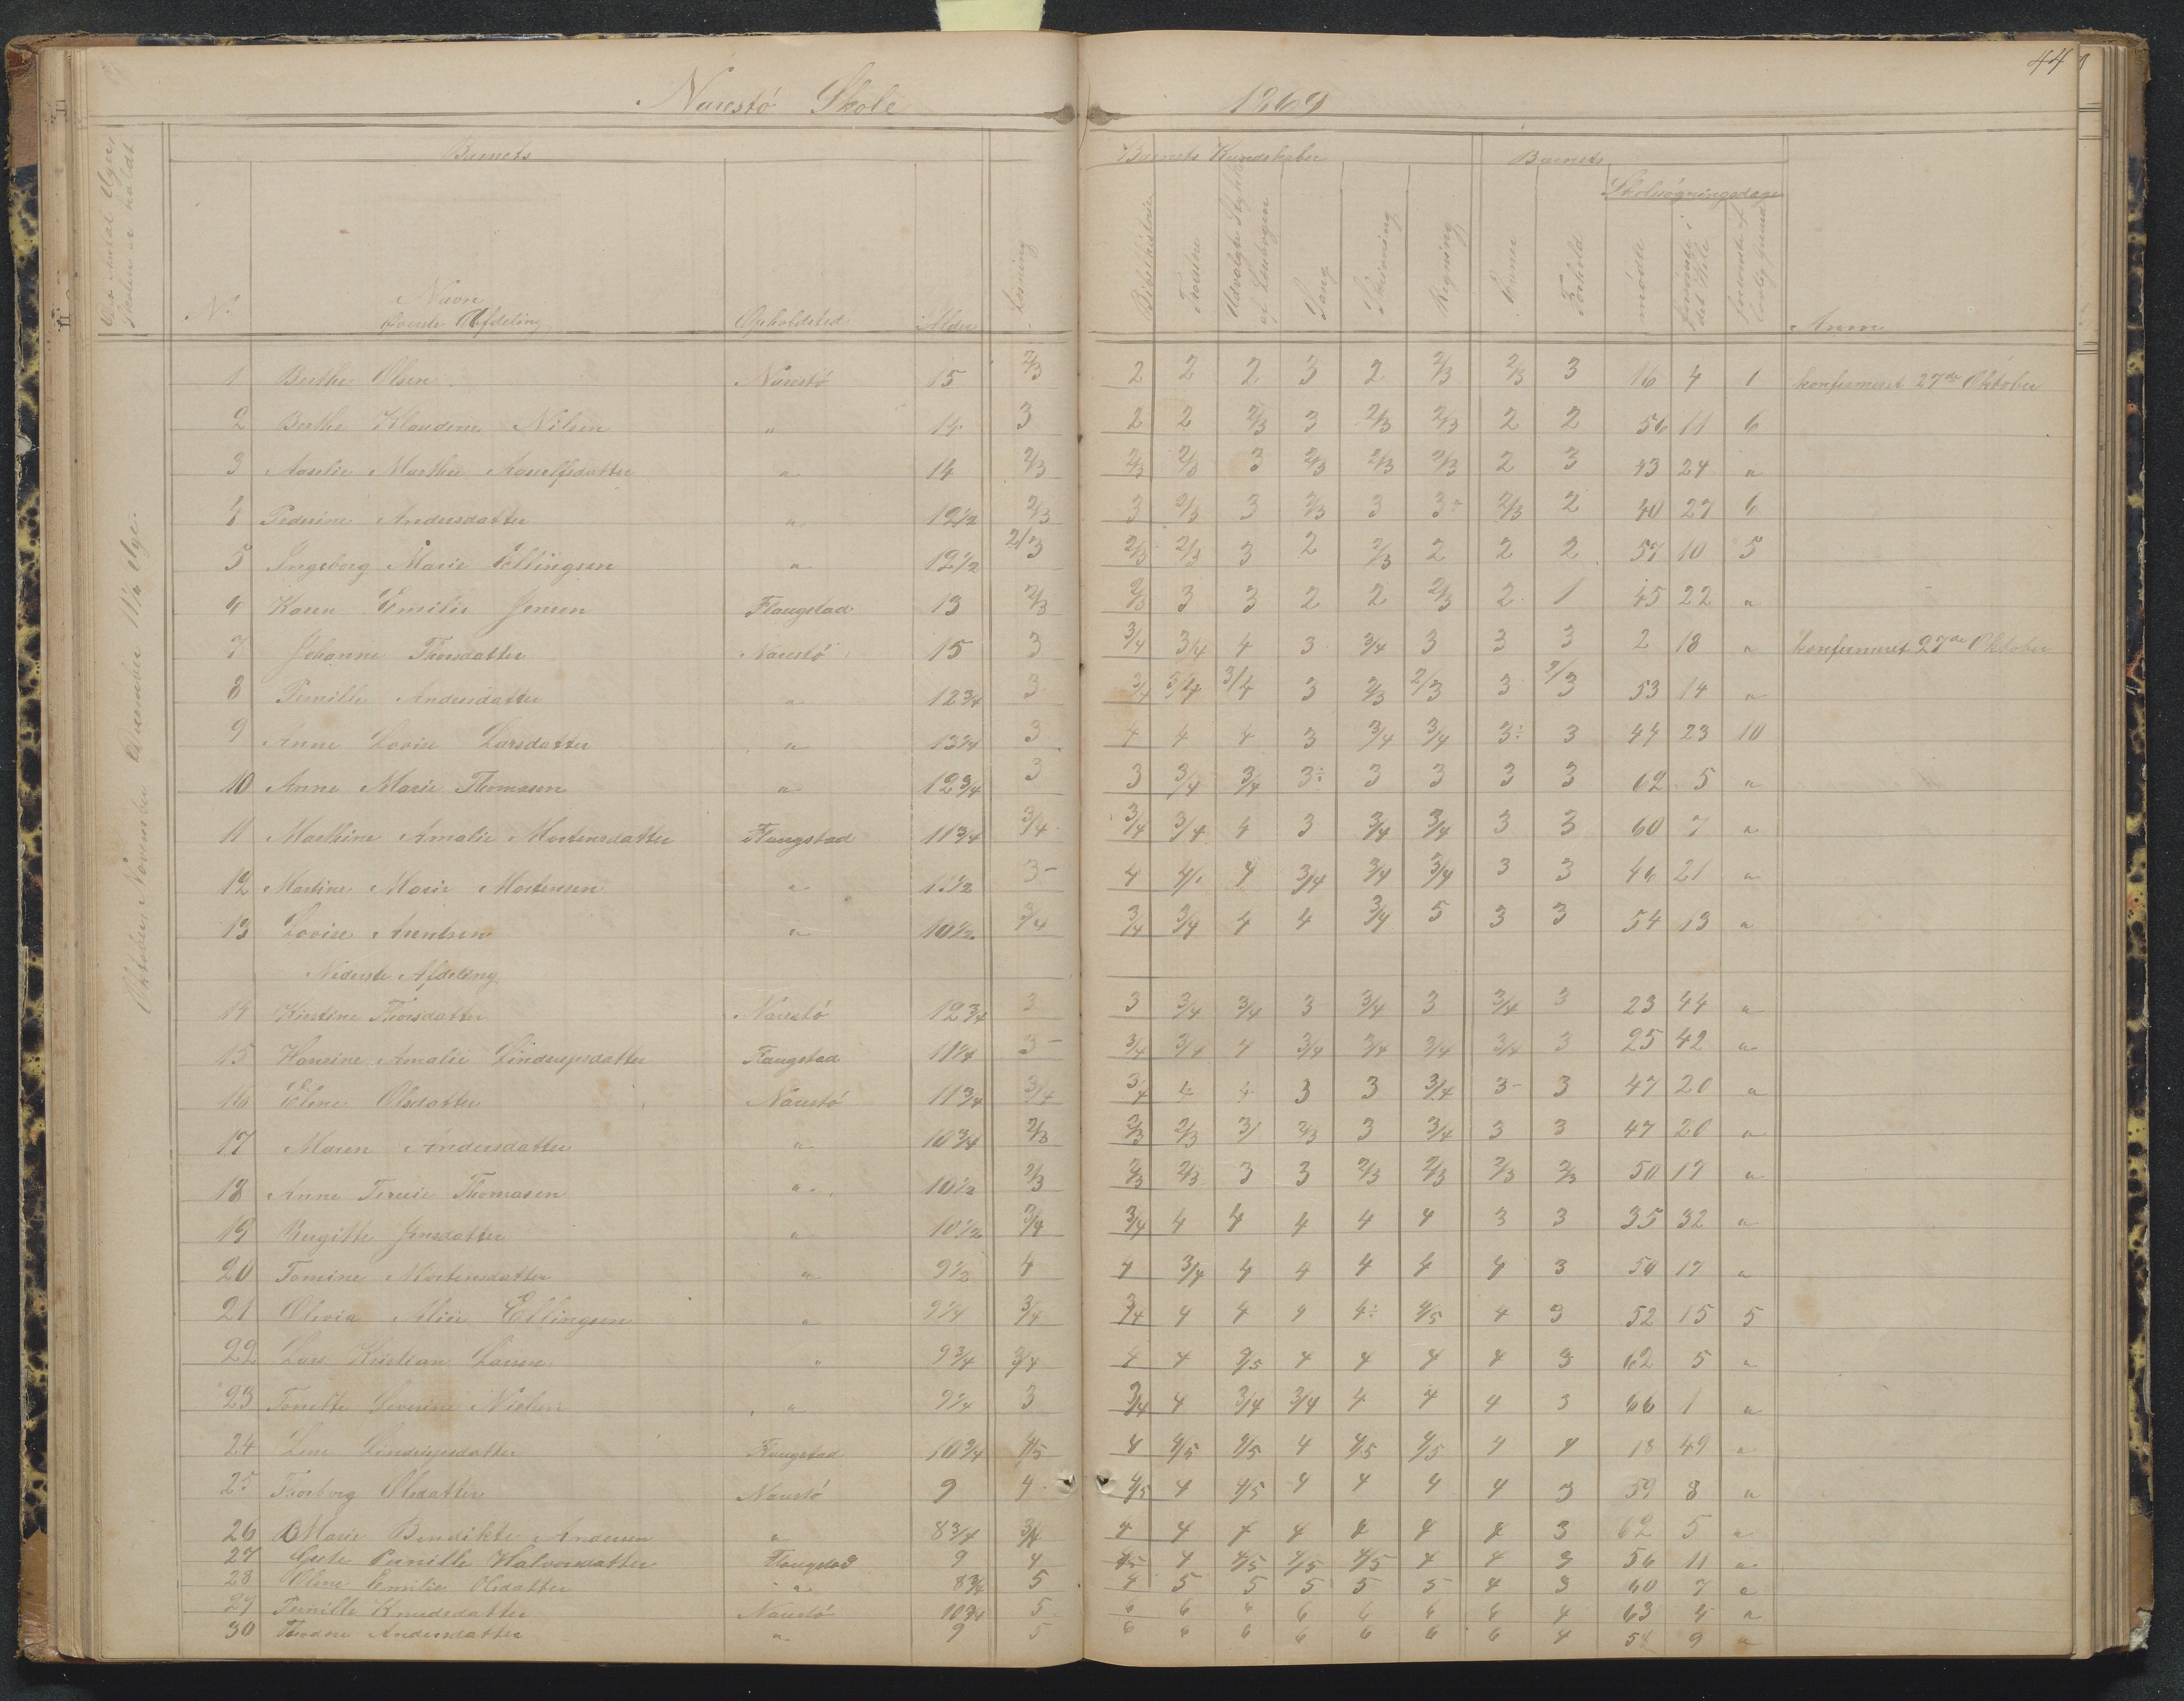 44
Narestö Skole 1869
Det Antal Uger, Skolen er holdt
Barnets
Barnets Kundskaber
Barnets
Skolesøgningsdage
No
Navn
Øverste Afdeling
Opholdsted
Alder
Læsning
Bibelhistorie
Troeslære
Udvalgte Stykker af Læsebogen
Sang
Skrivning
Regning
Evner
Forhold
mødte
forsømte i det Hele
forsømte af lovlig Grund
Anm
Oktober, November December 11 1/2 Uge.
1 Berthe Olsen Narestö 15 2/3 2 2 2 3 2 2/3 2/3 3 16 4 1 konfirmeret 27de Oktober
2 Berthe Klaudine Nilsen " 14 3 2 2 2/3 3 2/3 2/3 2 2 56 11 6
3 Aaselie Marthe Aanelfsdatter " 14 2/3 2/3 2/3 3 2/3 2/3 2/3 2 3 43 24 "
4 Pederine Andersdatter " 12 1/2 2/3 3 2/3 3 2/3 3 3- 2/3 2 40 27 6
5 Ingeborg Marie Ellingsen " 12 1/2 2/3 2/3 2/3 3 2 2/3 2 2 2 57 10 5
6 Karen Emilie Jensen Flangstad 13 2/3 2/3 3 3 2 2 2/3 2 1 45 22 "
7 Johanne Thorsdatter Narestö 15 3 3/4 3/4 4 3 3/4 3 3 3 2 18 " konfirmeret 27de Oktober
8 Pernille Andersdatter " 12 3/4 3 3/4 3/4 3/4 3 2/3 2/3 3 2/3 53 14 "
9 Anne Lovise Larsdatter " 13 1/4 3 4 4 4 3 3/4 3/4 3÷ 3 44 23 10
10 Anne Marie Thomasen " 12 3/4 3 3 3/4 3/4 3÷ 3 3 3 3 62 5 "
11 Marthine Amalie Mortensdatter Flangstad 11 3/4 3/4 3/4 3/4 4 3 3/4 3/4 3 3 60 7 "
12 Martine Marie Mortensen " 11 1/2 3- 4 4/ 4 3/4 3/4 3/4 3 3 46 21 "
13 Lovise Arentsen " 10 1/2 3/4 3/4 3/4 4 4 3/4 5 3 3 54 13 "
Nederste Afdeling
14 Kirstine Thorsdatter Narestö 12 3/4 3 3 3/4 3/4 3 3/4 3 3/4 3 23 44 "
15 Hansine Amalie Lindrupsdatter Flangstad 11 1/4 3- 3/4 3/4 4 3/4 3/4 3/4 3/4 3 25 42 "
16 Eline Olsdatter Narestö 11 3/4 3/4 3/4 4 4 3 3 3/4 3- 3 47 20 "
17 Maren Andersdatter " 10 3/4 2/3 2/3 2/3 3/ 2/3 3 3/4 3 3 47 20 "
18 Anne Teresie Thomasen " 10 1/2 2/3 2/3 2/3 3 3 2/3 2/3 2/3 2/3 50 17 "
19 Birgitte Jensdatter " 10 1/2 3/4 3/4 4 4 4 4 4 3 3 35 32 "
20 Tomine Mortensdatter " 9 1/2 4 4 3/4 4 4 4 4 4 3 50 17 "
21 Olivia Alise Ellingsen " 9 1/4 3/4 3/4 4 4 4 4÷ 4/5 4 3 52 15 5
22 Lars Kristian Larsen " 9 3/4 3/4 4 4 4/5 4 4 4 4 3 62 5 "
23 Tonette Severine Nielsen " 9 1/4 3 3/4 4 3/4 3/4 4 4 4 3 66 1 "
24 Lene Lindrupsdatter Flangstad 10 3/4 4/5 4 4/5 4/5 4 4/5 4/5 4 4 18 49 "
25 Thorborg Olsdatter Narestö 9 4 4/5 4 4/5 4 4 4 4 3 59 8 "
26 Marie Bendikte Andersen " 8 3/4 3/4 4 4 4 4 4 4 4 3 62 5 "
27 Gute Pernille Halvorsdatter Flangstad 9 4 4/5 4 4/5 4/5 4/5 4 4 3 56 11 "
28 Oline Emilie Olsdatter " 8 3/4 5 4 5 5 5 5 5 4 3 60 7 "
29 Pernille Knudsdatter Narestö 10 3/4 5 6 6 6 6 6 6 6 4 63 4 "
30 Teodore Andersdatter " 9 5 6 6 6 6 6 6 6 4 58 9 "